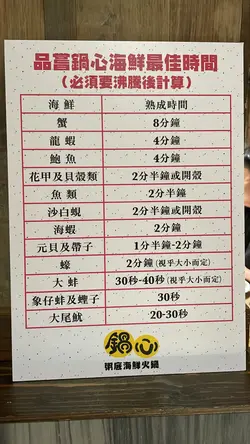 品嘗鍋心海鮮最佳時間
(必須要沸騰後計算)
海鮮 熟成時間
蟹 8分鐘
龍蝦 4分鐘
鮑魚 4分鐘
花甲及貝殼類 2分半鐘或開殼
魚類 2分半鐘
沙白蜆 2分半鐘或開殼
海蝦 2分鐘
元貝及帶子 1分半鐘-2分鐘
蠔 2分鐘(視乎大小而定)
大蚌 30秒-40秒(視乎大小而定)
象仔蚌及蟶子 30秒
大尾魷 20-30秒
鍋心
粥底海鮮火鍋